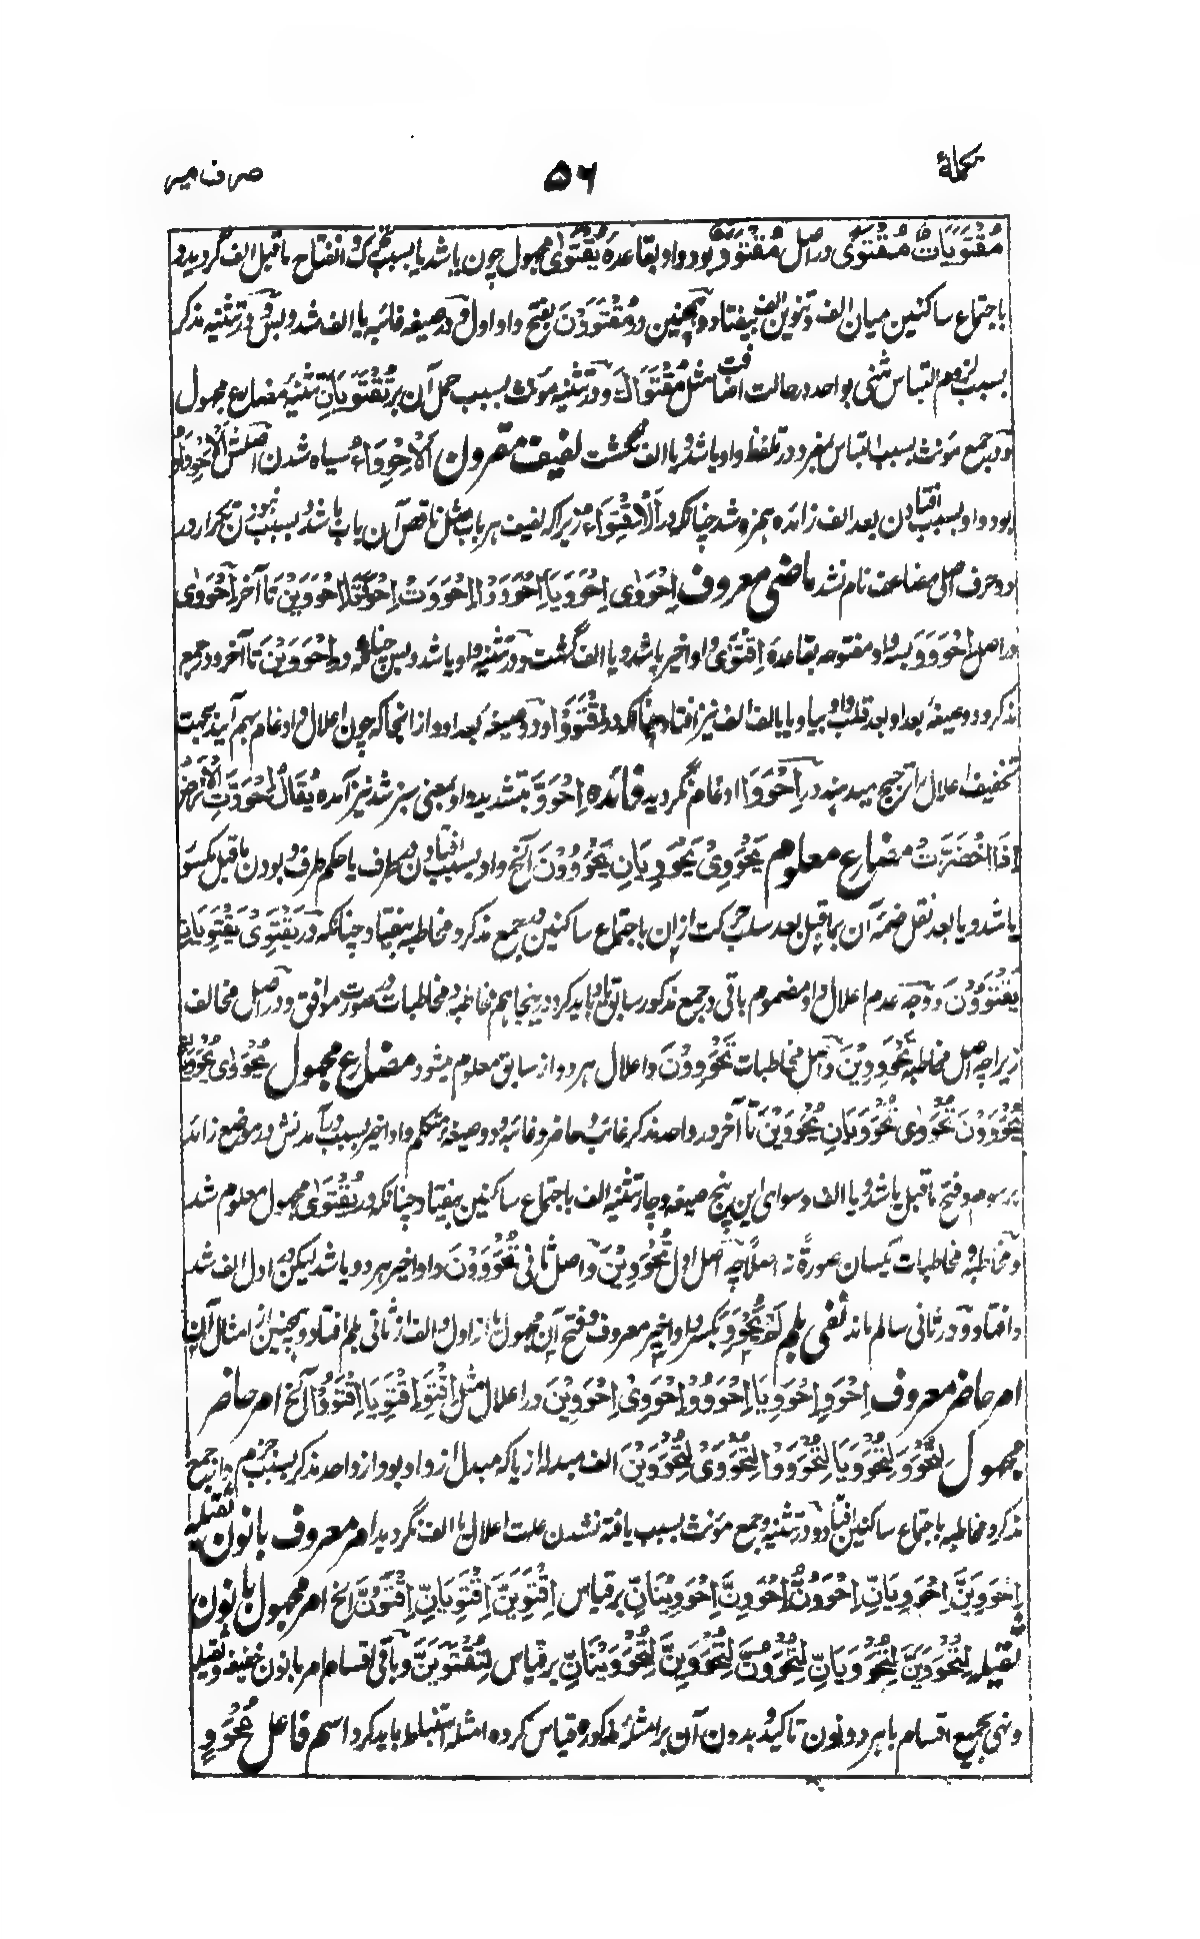 تکملهٔ ۵۶ صرف میر
مُقْتَوَیَاتٌ مُقْتَوًی دراصل مُقْتَوَوٌ بود واو بقاعدهٔ یُقْتَوٰی مجهول چون یا شد یا بسبب تحرک و انفتاح ماقبل الف گردید و
باجتماع ساکنین میان الف و تنوین الف بیفتاد و همچنین در مُقْتَوَوْنَ بفتح واو اول و در صیغه غائبه یا الف شد و لیس در تثنیه مذکر
بسبب لزوم التباس مثنی بواحد در حالت اضافت مثل مُقْتَوَاكَ و در تثنیه مؤنث بسبب حمل آن بر تُقْتَوَیَانِ تثنیه مضارع مجهول
و در جمع مؤنث بسبب التباس بمفرد در تلفظ واو یا شد و یا الف نگشت لفیف مقرون اَلْاِحْوِوَاءُ سیاه شدن اصلش اَلْاِحْوِوَاوُ
بود واو بسبب افتادن بعد الف زائده همزه شد چنانکه در اَلْاِقْتِوَاءُ زیراکه لفیف هر باب مثل ناقص آن باب باشد و بسبب نبودن تکرار در
دو حرف اصلی مضاعف نام نشد ماضی معروف اِحْوَوٰی اِحْوَوَیَا اِحْوَوَوْا اِحْوَوَتْ اِحْوَوَتَا اِحْوَوَیْنَ تا آخر اِحْوَوٰی
دراصل اِحْوَوَوَ بسه واو مفتوحه بقاعده اِقْتَوٰی واو اخیر یا شد و یا الف گشت و در تثنیه واو یا شد و بس چنانکه در اِحْوَوَیْنَ تا آخر و در جمع
مذکر و دو صیغهٔ بعد او بعد قلب واو بیا و یا بالف الف نیز افتاد چنانکه در اِقْتَوَوْا و دو صیغهٔ بعد او و از انجا که چون اعلال و ادغام بهم آیند بجهت
تخفیف اعلال را ترجیح میدهند در اِحْوَوَا ادغام نگردید فائده اِحْوَوَّ بتشدید واو بمعنی سبز شد نیز آمده یُقَالُ اِحْوَوَّتِ الْاَرْضُ
اِذَا اخْضَرَّتْ مضارع معلوم یَحْوَوِیْ یَحْوَوِیَانِ یَحْوَوُوْنَ الخ واو بسبب افتادن در طرف یا حکم طرف و بودن ماقبل مکسور
یا شد و یا بعد نقل ضمه آن بماقبل بعد سلب حرکت ازان باجتماع ساکنین در جمع مذکر و مخاطبه بیفتاد چنانکه در یَقْتَوِیْ یَقْتَوِیَانِ
یَقْتَوُوْنَ و وجه عدم اعلال واو مضموم باقی در جمع مذکور سابق باید کرد و درینجا هم مخاطبه و مخاطبات در صورت موافق و در اصل مخالف
زیراچه اصل مخاطبه تَحْوَوِوِیْنَ و اصل مخاطبات تَحْوَوِوْنَ و اعلال هر دو از سابق معلوم میشود مضارع مجهول یُحْوَوٰی یُحْوَوَیَانِ
یُحْوَوَوْنَ تُحْوَوٰی تُحْوَوَیَانِ یُحْوَوَیْنَ تا آخر در واحد مذکر غائب و حاضر و غائبه و دو صیغهٔ متکلم واو اخیر بسبب در آمدنش در موضع زائد
بر سوم و فتح ماقبل یا شد و یا الف و سوای این پنج صیغه و چار تثنیه الف باجتماع ساکنین بیفتاد چنانکه در یُقْتَوٰی مجهول معلوم شد
و مخاطبه و مخاطبات یکسان صورةً نه اصلاً چه اصل اول تُحْوَوَوِیْنَ و اصل ثانی تُحْوَوَوْنَ واو اخیر هر دو یا شد لیکن در اول الف شد
و افتاد و در ثانی سالم ماند نفی بلم لَمْ یُحْوَوَ بکسر واو اخیر معروف و فتح آن مجهول یا از اول و الف از ثانی بلم افتاد و همچنین از امثال آن
امر حاضر معروف اِحْوَوِ اِحْوَوِیَا اِحْوَوُوْا اِحْوَوِیْ اِحْوَوِیْنَ در اعلال مثل اِقْتَوِ اِقْتَوِیَا اِقْتَوُوْا الخ امر حاضر
مجهول لِتُحْوَوَ لِتُحْوَوَیَا لِتُحْوَوَوْا لِتُحْوَوَیْ لِتُحْوَوَیْنَ الف مبدله از یا که مبدل از واو بود از واحد مذکر بسبب جزم و از جمع
مذکر و مخاطبه باجتماع ساکنین افتاد و در تثنیه و جمع مؤنث بسبب یافته نشدن علت اعلال یا الف نگردید امر معروف بانون ثقیله
اِحْوَوِیَنَّ اِحْوَوِیَانِّ اِحْوَوُنَّ اِحْوَوِنَّ اِحْوَوِیْنَانِّ برقیاس اِقْتَوِیَنَّ اِقْتَوِیَانِّ اِقْتَوُنَّ الخ امر مجهول بانون
ثقیله لِتُحْوَوَیَنَّ لِتُحْوَوَیَانِّ لِتُحْوَوَوُنَّ لِتُحْوَوَیِنَّ لِتُحْوَوَیْنَانِّ برقیاس لِتُقْتَوَیَنَّ و باقی اقسام امر بانون خفیفه و ثقیله
و نهی بجمیع اقسام با هر دو نون تاکید و بدون آن بر امثلهٔ مذکوره قیاس کرده امثله استنباط باید کرد اسم فاعل مُحْوَوٍ